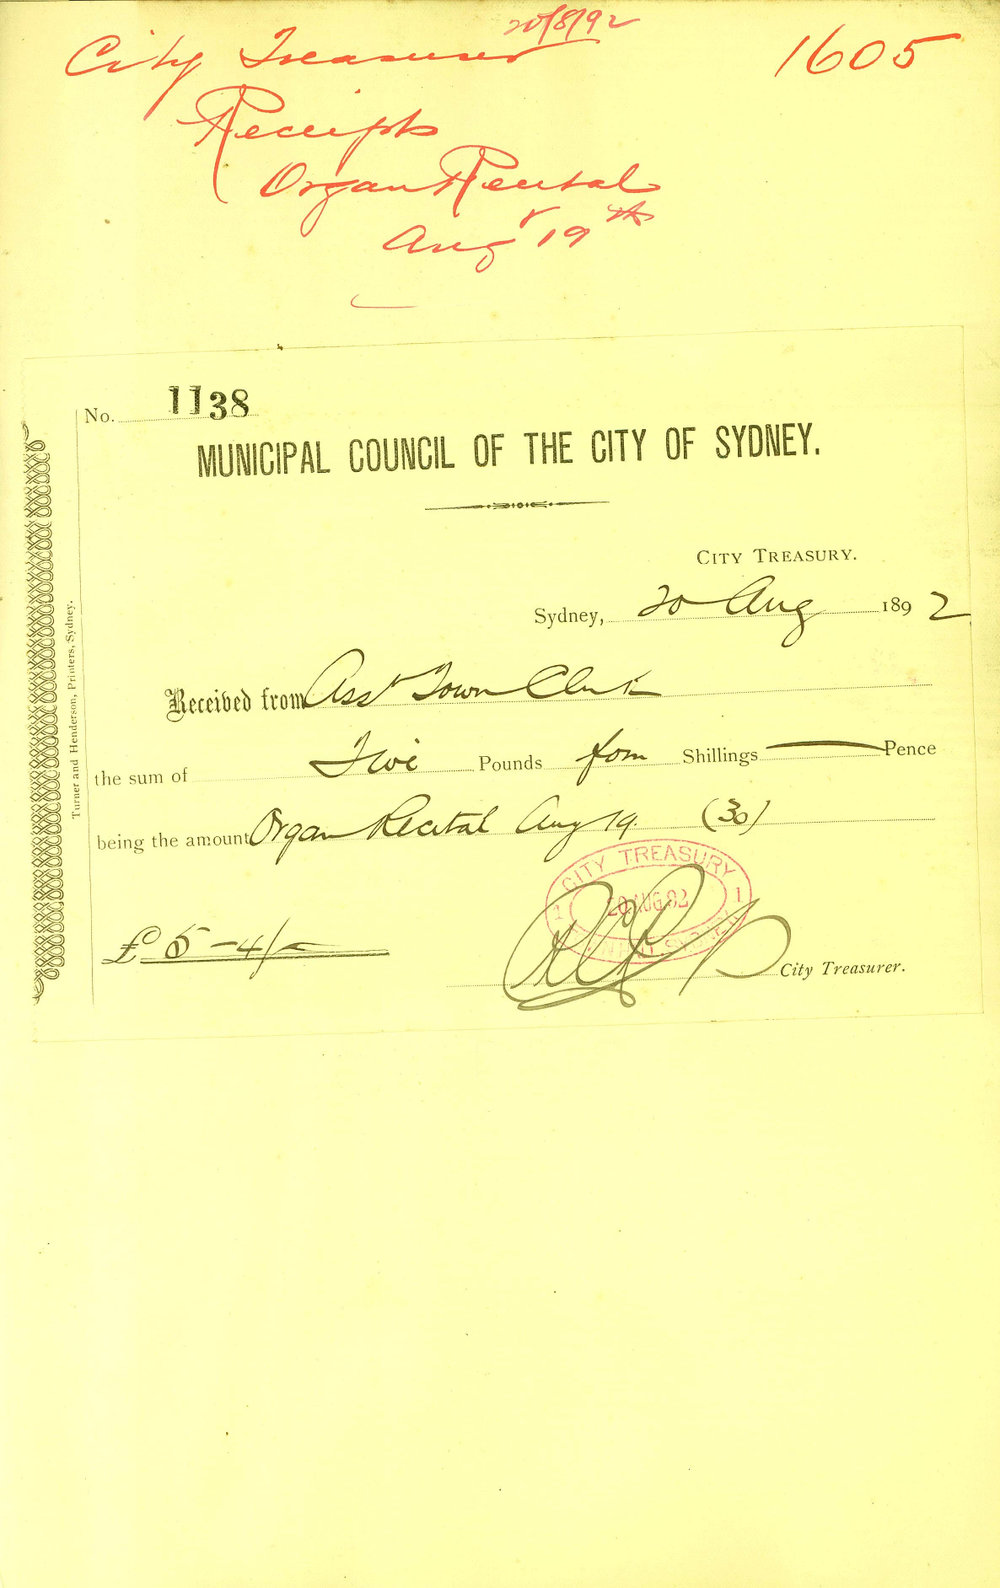 20/8/92
City Treasurer
1605
Receipts
Organ Recital
Augt 19th
No. 1138
MUNICIPAL COUNCIL OF THE CITY OF SYDNEY.
CITY TREASURY.
Sydney, 20 Aug 1892
Received from Asst Town Clerk
the sum of Five Pounds four Shillings — Pence
being the amount Organ Recital Aug 19 (30)
CITY TREASURY
1 20 AUG 92 1
£ 5-4/-
City Treasurer.
Turner and Henderson, Printers, Sydney.